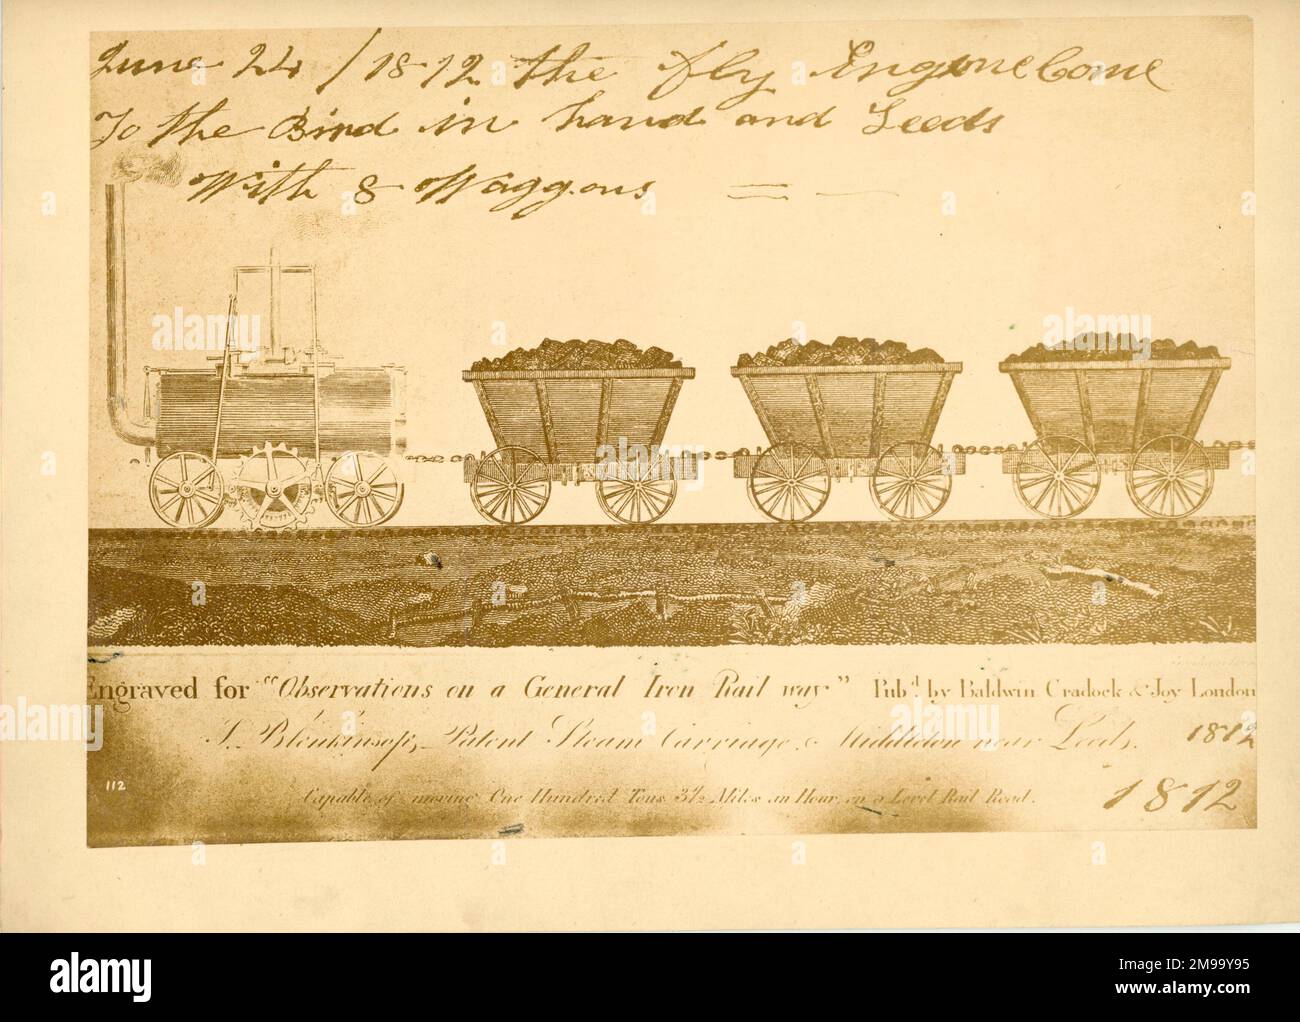 June 24 / 1812 the fly Engine Come
To the Bird in hand and Leeds
With 8 Waggons
Engraved for "Observations on a General Iron Rail way" Pubd. by Baldwin Cradock & Joy London
J. Blenkinsop's Patent Steam Carriage, Middleton near Leeds. 1812
112
Capable of moving One Hundred Tons 3½ Miles an Hour on a Level Rail Road.
1812
alamy
alamy
alamy
Image ID: 2M99Y95
www.alamy.com